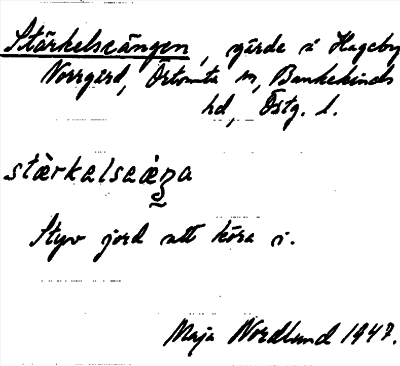 Stärkelseängen, gärde i Hageby
Norrgård, Örtomta sn, Bankekinds
hd, Östg. l.
stàrkelseäŋa
Styv jord att köra i.
Maja Nordlund 1947.